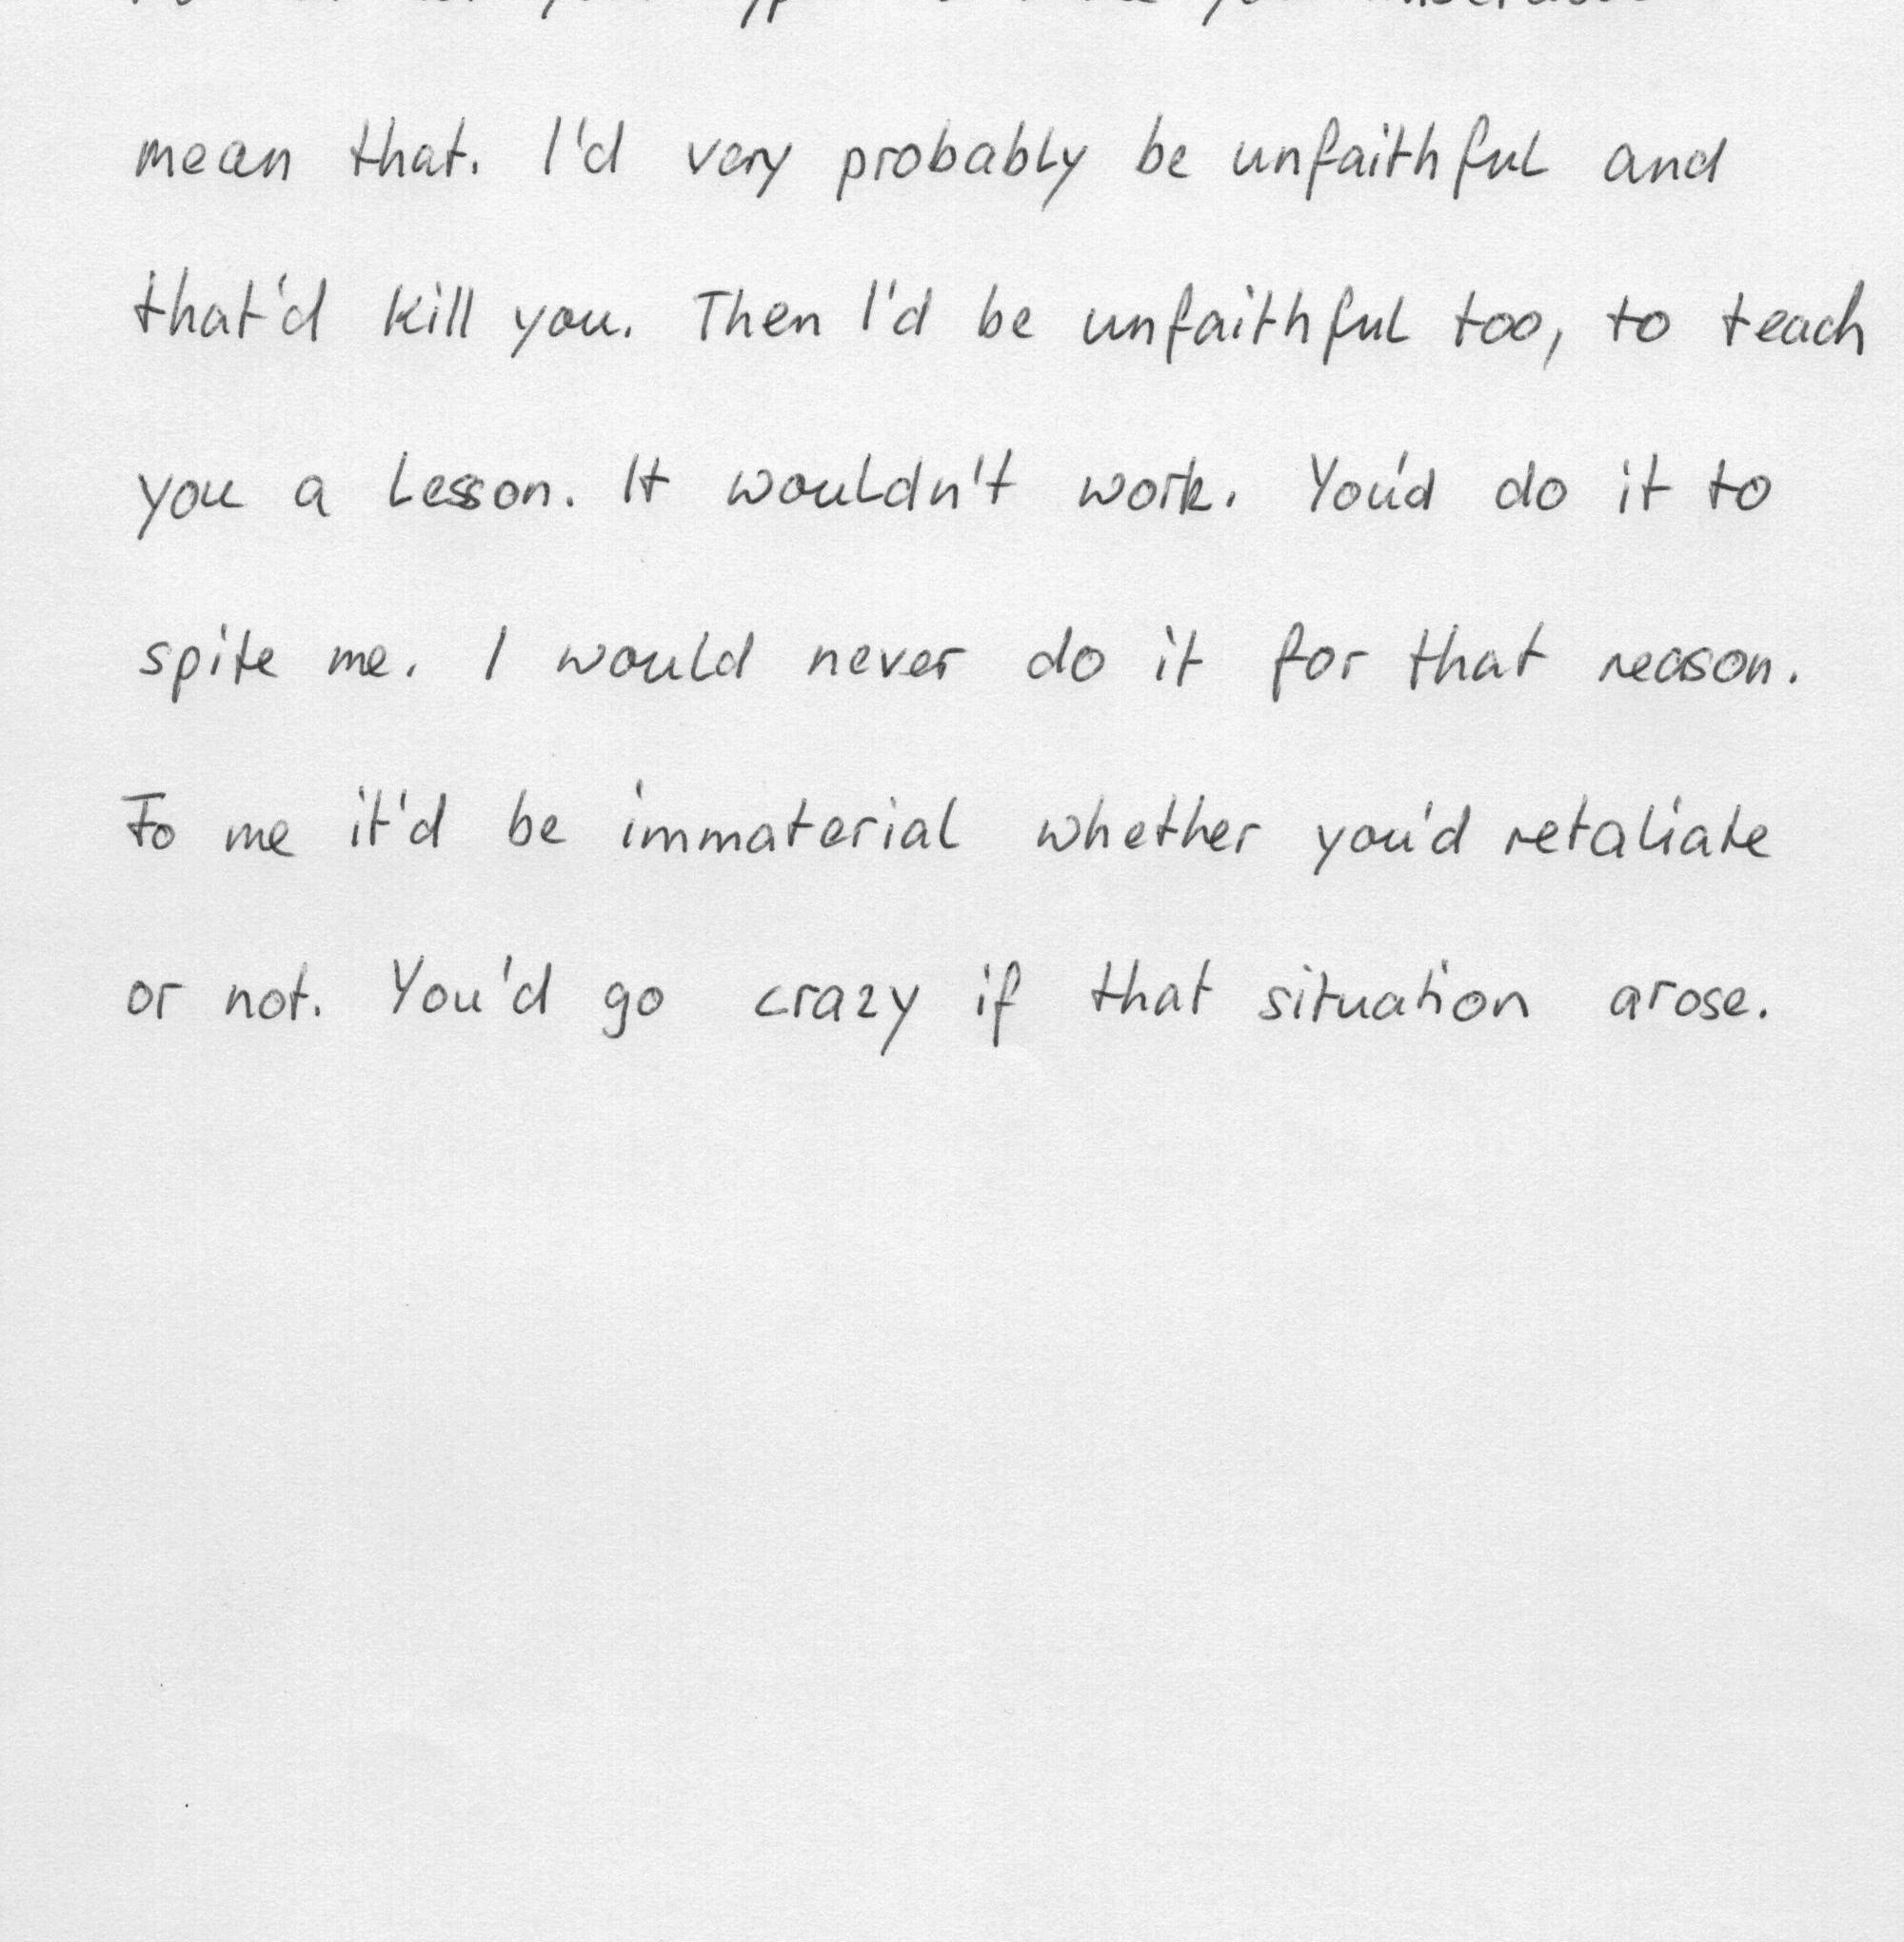 mean that. I'd very probably be unfaithful and
that'd kill you. Then I'd be unfaithful too, to teach
you a lesson. It wouldn't work. You'd do it to
spite me. I would never do it for that reason.
To me it'd be immaterial whether you'd retaliate
or not. You'd go crazy if that situation arose.